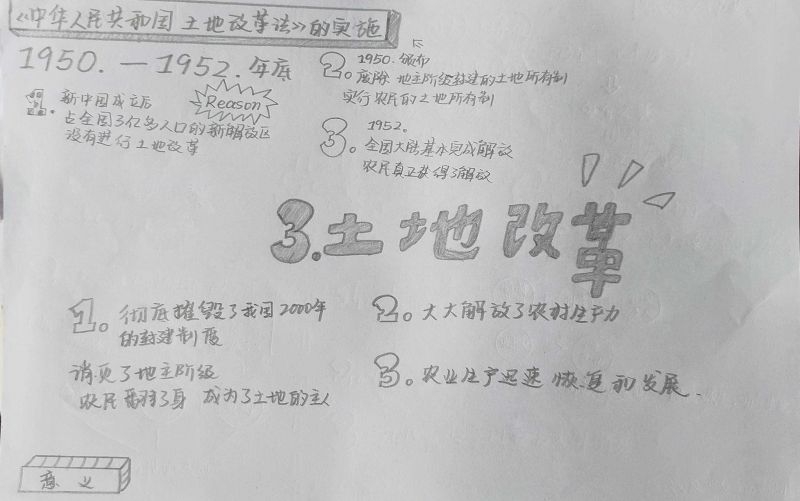 《中华人民共和国土地改革法》的实施
1950.—1952.年底
Reason
1. 新中国成立后
占全国3亿多人口的新解放区
没有进行土地改革
2. 1950.颁布
废除地主阶级封建的土地所有制
实行农民的土地所有制
3. 1952.
全国大陆基本完成解放
农民真正获得了解放
3.土地改革
1. 彻底摧毁了我国2000年
的封建制度
消灭了地主阶级
农民翻了身 成为了土地的主人
2. 大大解放了农村生产力
3. 农业生产迅速恢复和发展.
意义